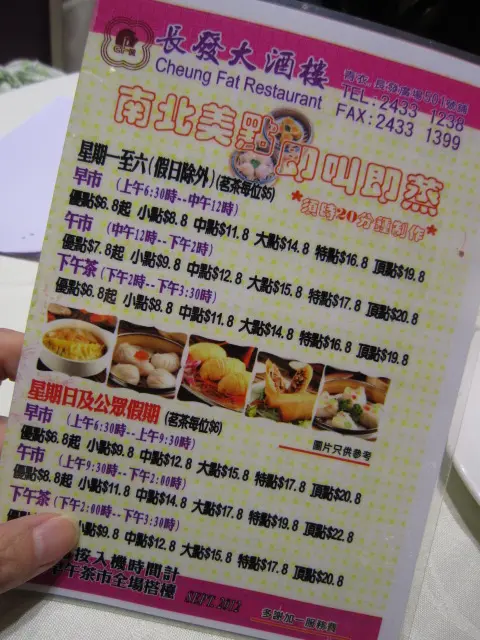 長發大酒樓
Cheung Fat Restaurant
青衣 長發廣場501號舖
TEL: 2433 1238
FAX: 2433 1399
南北美點即叫即蒸
*須時20分鐘制作*
星期一至六(假日除外)(茗茶每位$5)
早市 (上午6:30時--中午12時)
優點$6.8起 小點$8.8 中點$11.8 大點$14.8 特點$16.8 頂點$19.8
午市 (中午12時--下午2時)
優點$7.8起 小點$9.8 中點$12.8 大點$15.8 特點$17.8 頂點$20.8
下午茶(下午2時--下午3:30時)
優點$6.8起 小點$8.8 中點$11.8 大點$14.8 特點$16.8 頂點$19.8
圖片只供參考
星期日及公眾假期 (茗茶每位$6)
早市 (上午6:30時--上午9:30時)
優點$6.8起 小點$9.8 中點$12.8 大點$15.8 特點$17.8 頂點$20.8
午市 (上午9:30時--下午2:00時)
優點$8.8起 小點$11.8 中點$14.8 大點$17.8 特點$19.8 頂點$22.8
下午茶(下午2:00時--下午3:30時)
小點$9.8 中點$12.8 大點$15.8 特點$17.8 頂點$20.8
按入機時間計
午茶市全場搭檯
SEPT. 2012
多謝加一服務費